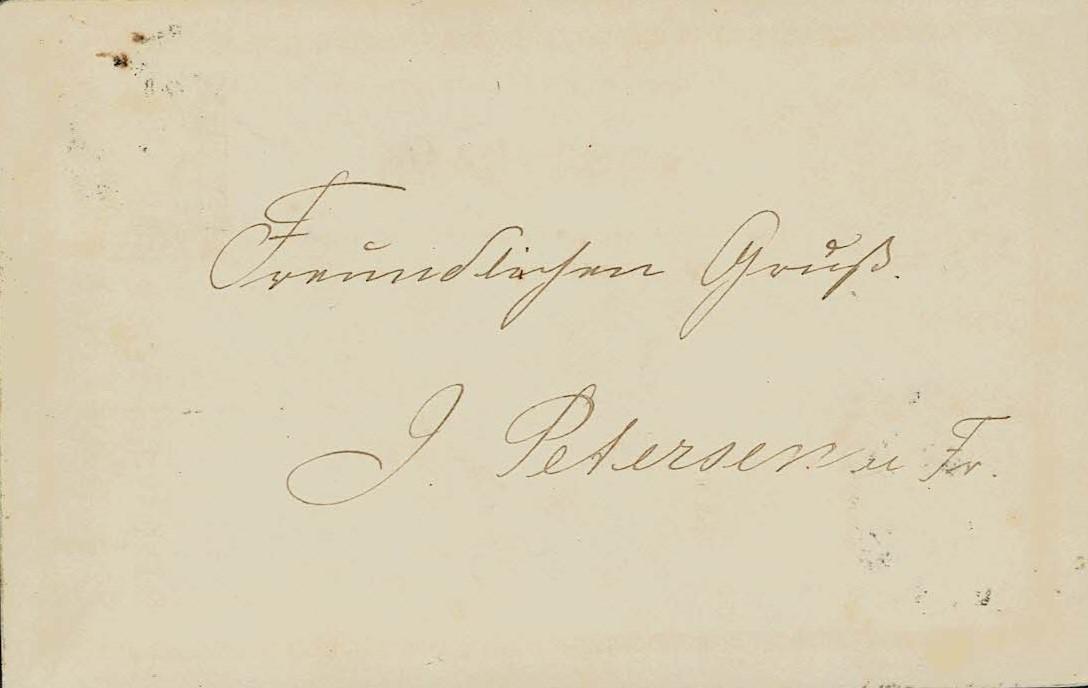 Freundlichen Gruß.
J. Petersen u Fr.